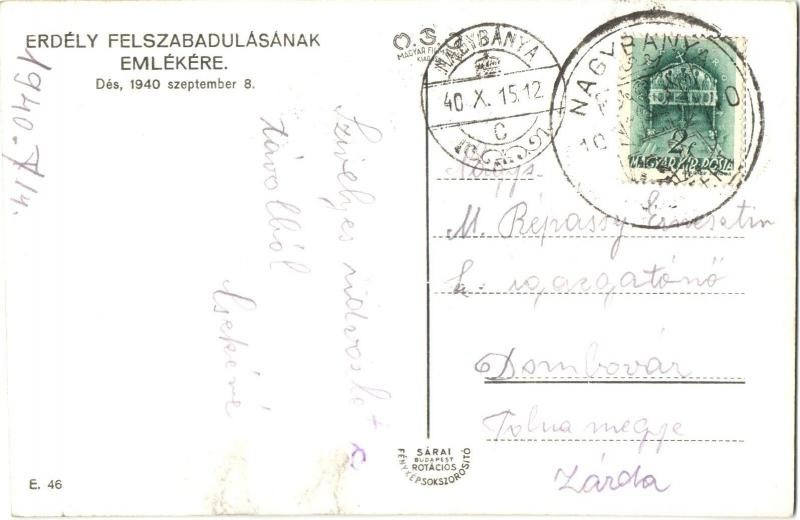 ERDÉLY FELSZABADULÁSÁNAK
EMLÉKÉRE.
Dés, 1940 szeptember 8.
1940. X 14.
Szivélyes üdvözlet
távolból
Csekéné
E. 46
MAGYAR FILM
NAGYBÁNYA
40 X. 15.12
C
NAGYBÁNYA
2f
MAGYAR KIR. POSTA
Nagys.
M. Répássy Ernesztin
igazgatónő
Dombovár
Tolna megye
Zárda
SÁRAI
BUDAPEST
ROTÁCIÓS
FÉNYKÉPSOKSZOROSITÓ